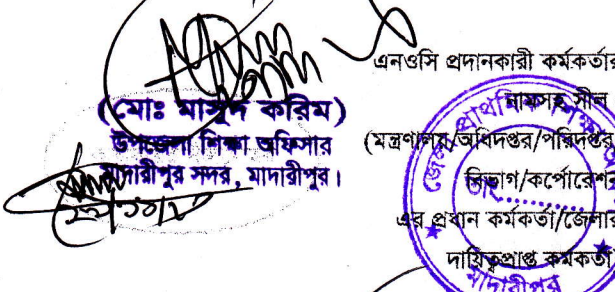 (মোঃ মাসুদ করিম)
উপজেলা শিক্ষা অফিসার
মাদারীপুর সদর, মাদারীপুর।
এনওসি প্রদানকারী কর্মকর্তার
নামসহ সীল
(মন্ত্রণালয়/অধিদপ্তর/পরিদপ্তর
বিভাগ/কর্পোরেশন
এর প্রধান কর্মকর্তা/জেলার
দায়িত্বপ্রাপ্ত কর্মকর্তা
জেলা প্রাথমিক শিক্ষা
তাং
মাদারীপুর